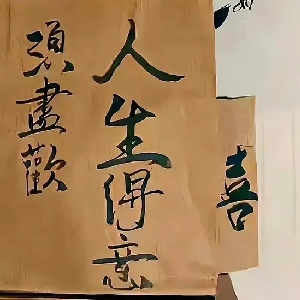 人生得意
須盡歡
喜